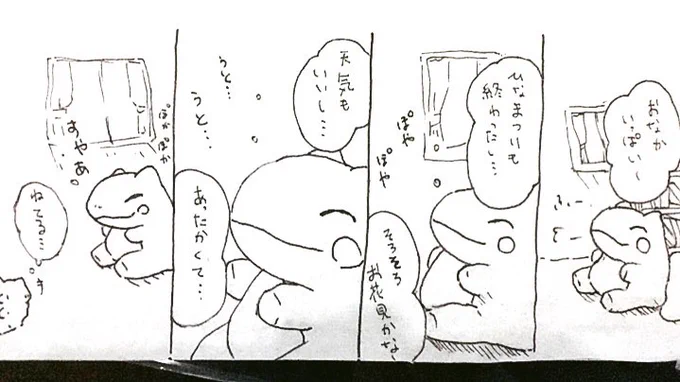 おなか
いっぱい〜
ふー
ひなまつりも
終わったし…
ぽや
ぽや
そろそろ
お花見かな〜
天気も
いいし…
うと…
うと…
あったかくて…
ぽか
ぽか
すやぁ。
ねてる…